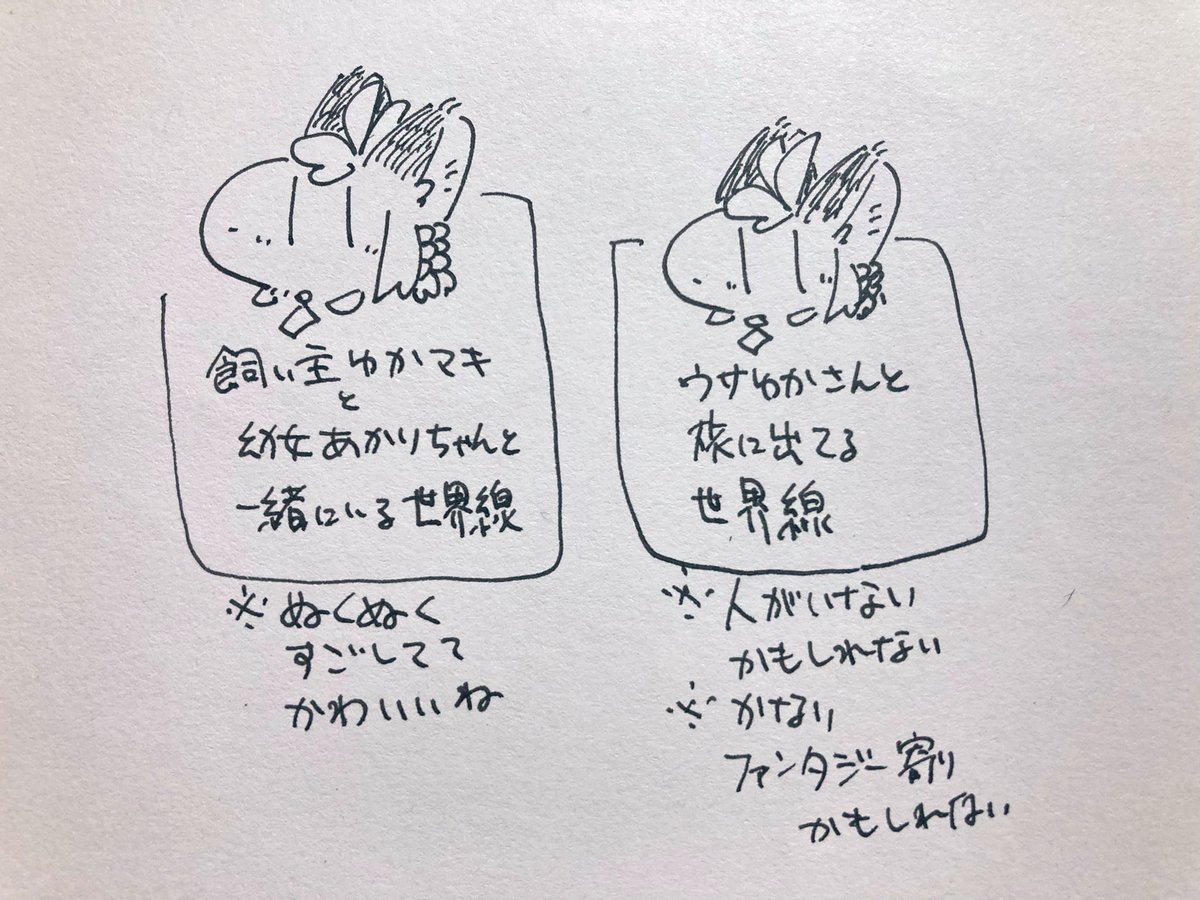 飼い主ゆかマキ
と
幼女あかりちゃんと
一緒にいる世界線
※ぬくぬく
すごしてて
かわいいね
ウサゆかさんと
旅に出てる
世界線
※人がいない
かもしれない
※かなり
ファンタジー寄り
かもしれない